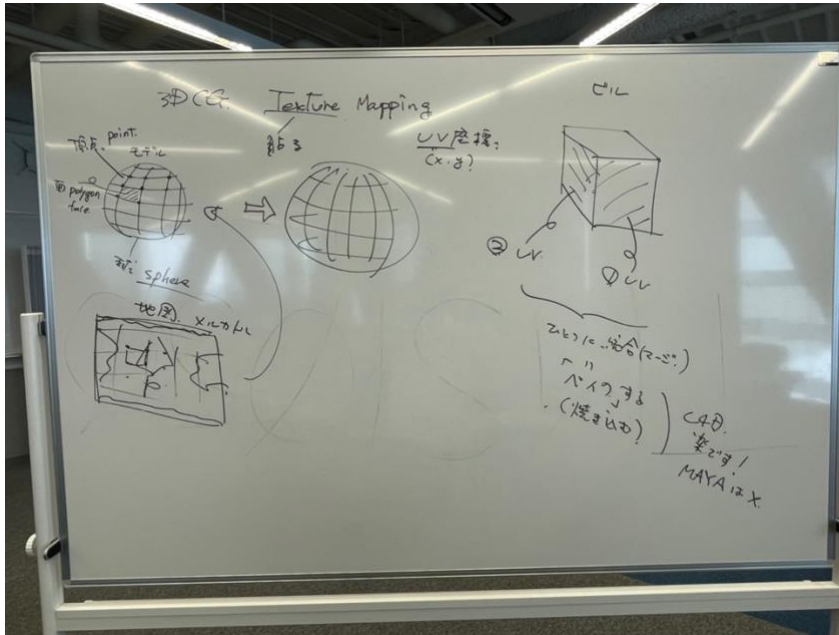 3DCG. Texture Mapping
貼る
頂点. point.
モデル
面 polygon
face.
球 sphere
地図. メルカトル
UV座標:
(x.y)
ビル
② UV.
① UV
ひとつに 結合(マージ.)
〃
ベイクする
(焼き込む)
C4D.
楽です!
MAYAは×.